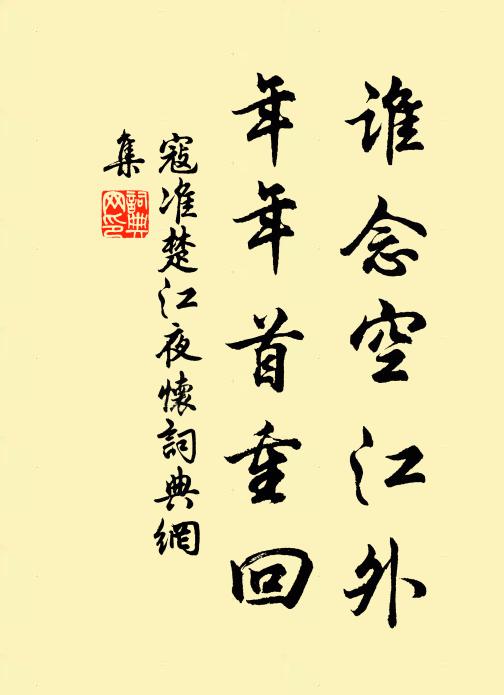 谁念空江外
年年首重回
寇准楚江夜怀词典網
集
詞典
网印